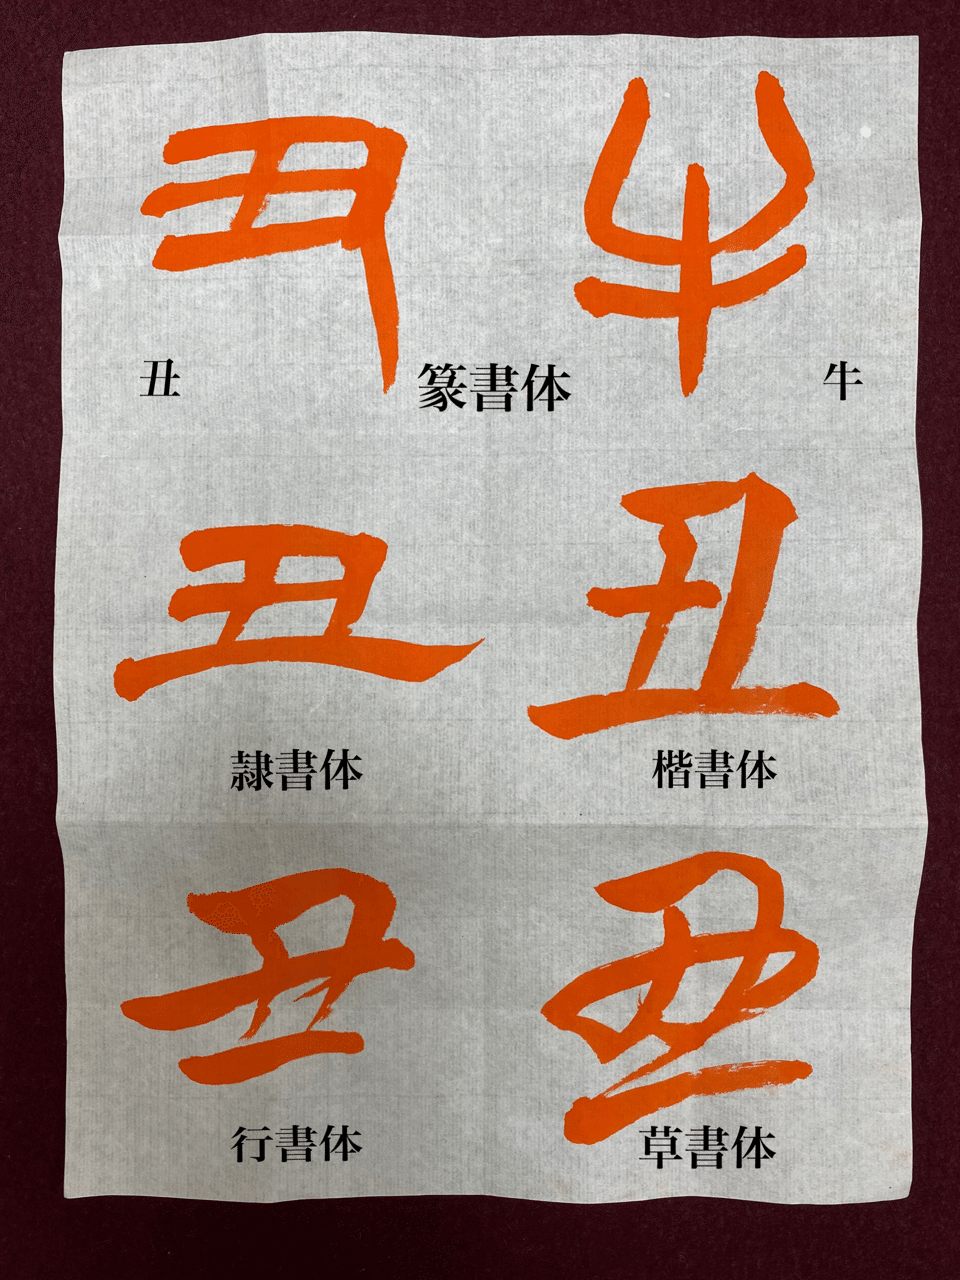 丑 牛
丑 篆書体 牛
丑 丑
隷書体 楷書体
丑 丑
行書体 草書体